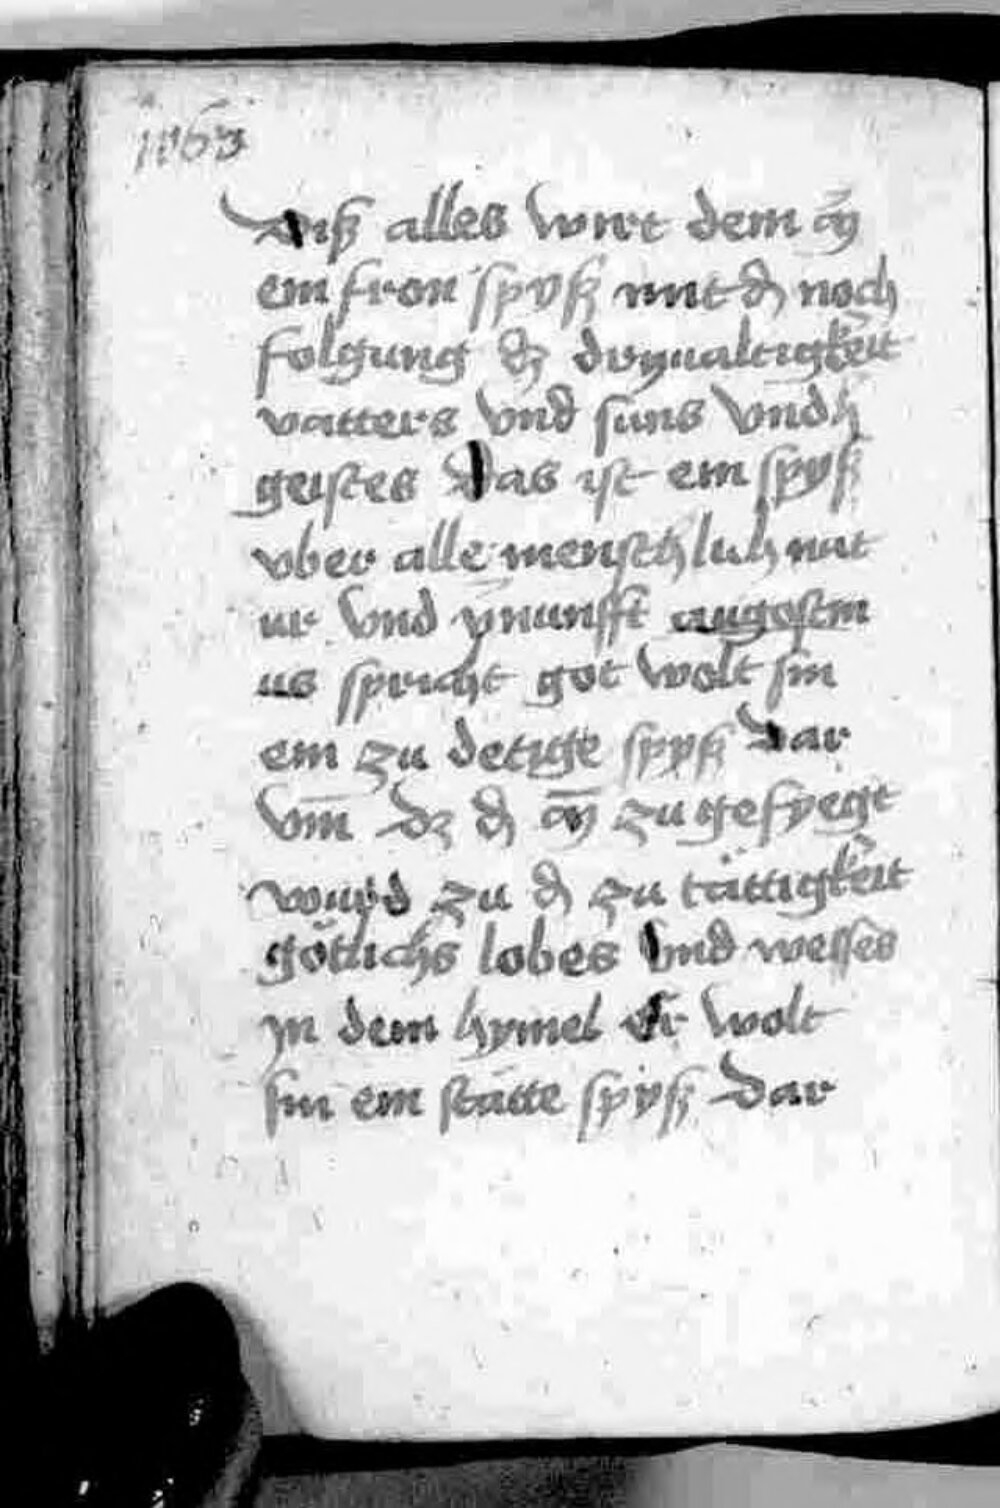 Diß alles wirt dem
ein fron spyß mit dʼ noch
folgung dʼ dryualtigkeit
vatters vnd suns vnd h
geistes Das ist ein spyß
vber alle menschlich nat
ur vnd vnunfft augostin
us spricht got wolt sin
ein zu spyß Dar
vm̄ dz dʼ zu gefyegt
wuͥrd zu dʼ zu tättigkeit
götlichs lobes vnd
jn dem hymel Er wolt
sin ein stätte spyß Dar